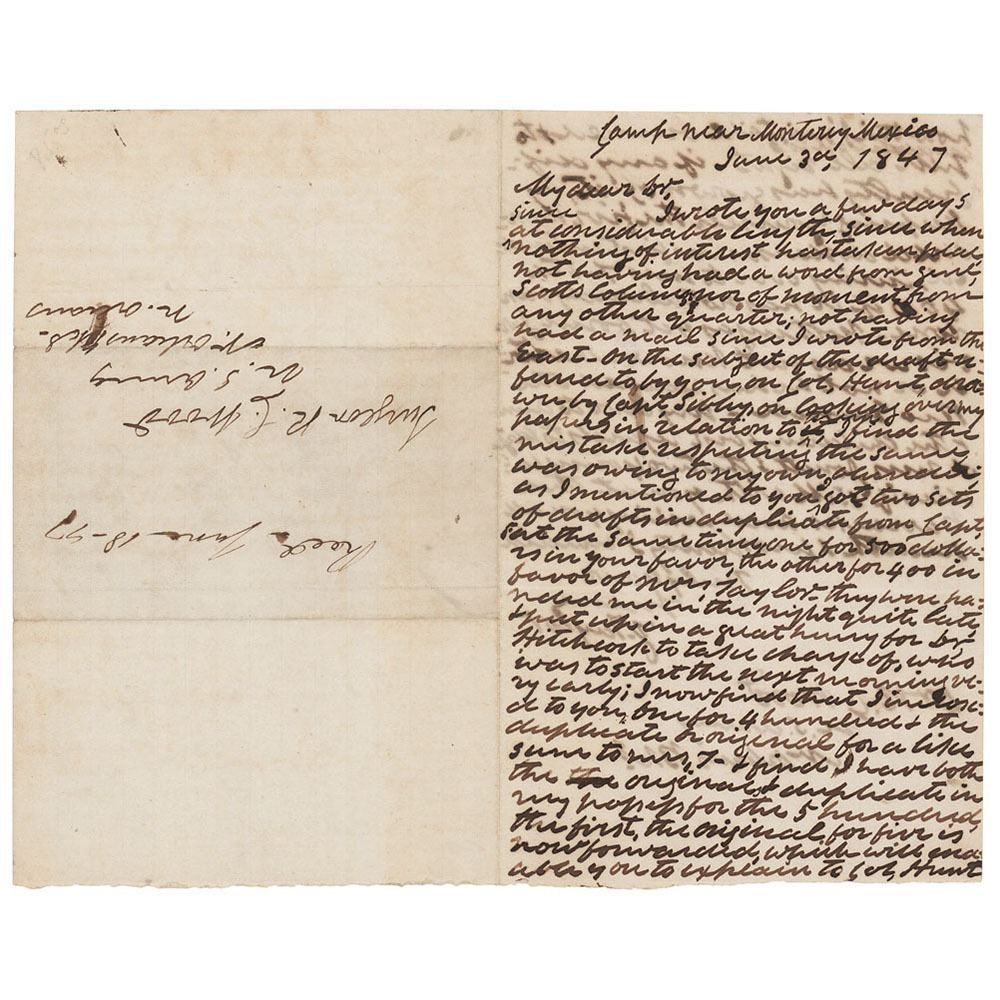 Camp near Monterey Mexico
June 3d, 1847
My dear Dr,
since I wrote you a few days
at considerable length, since when
nothing of interest has taken place
not having had a word from Genl,
Scotts Column, nor of moment from
any other quarter; not having
had a mail since I wrote from the
East- On the subject of the draft re-
fered to by you, on Col, Hunt, dra-
wn by Capt, Sibly, on looking over my
papers in relation to it, I find the
mistake respecting the same,
was owing to my own blunder,
as I mentioned to you got two sets
of drafts in duplicate from Capt,
S at the same time, one for 500 dolla-
rs in your favor, the other for 400 in
favor of Mrs Taylor- they were ha-
nded me in the night quite late,
& put up in a great hurry for Dr
Hitchcock to take charge of, who
was to start the next morning ve-
ry early; I now find that I inclose-
d to you, one for 4 hundred & the
duplicate or original for a like
sum to Mrs, T- & find I have both
the the original & duplicate in
my possess for the 5 hundred,
the first, the original for five is
now forwarded which will ena-
able you to explain to Col, Hunt
Surgeon R. C. Wood
U. S. Army
N. Orleans
Recd June 18-47